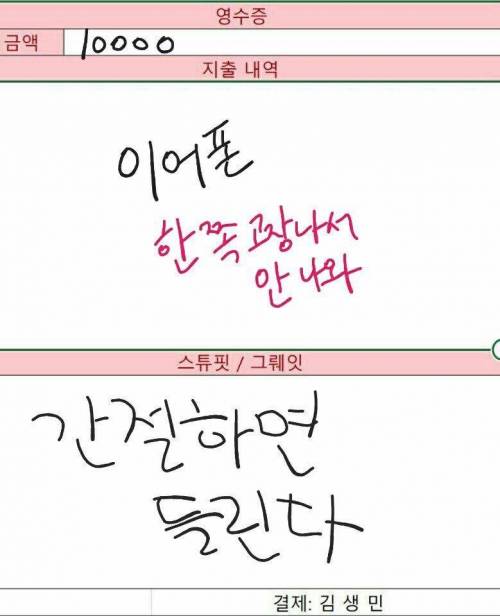 영수증
금액 10000
지출 내역
이어폰
한쪽 고장나서
안 나와
스튜핏 / 그뤠잇
간절하면
들린다
결제: 김 생 민